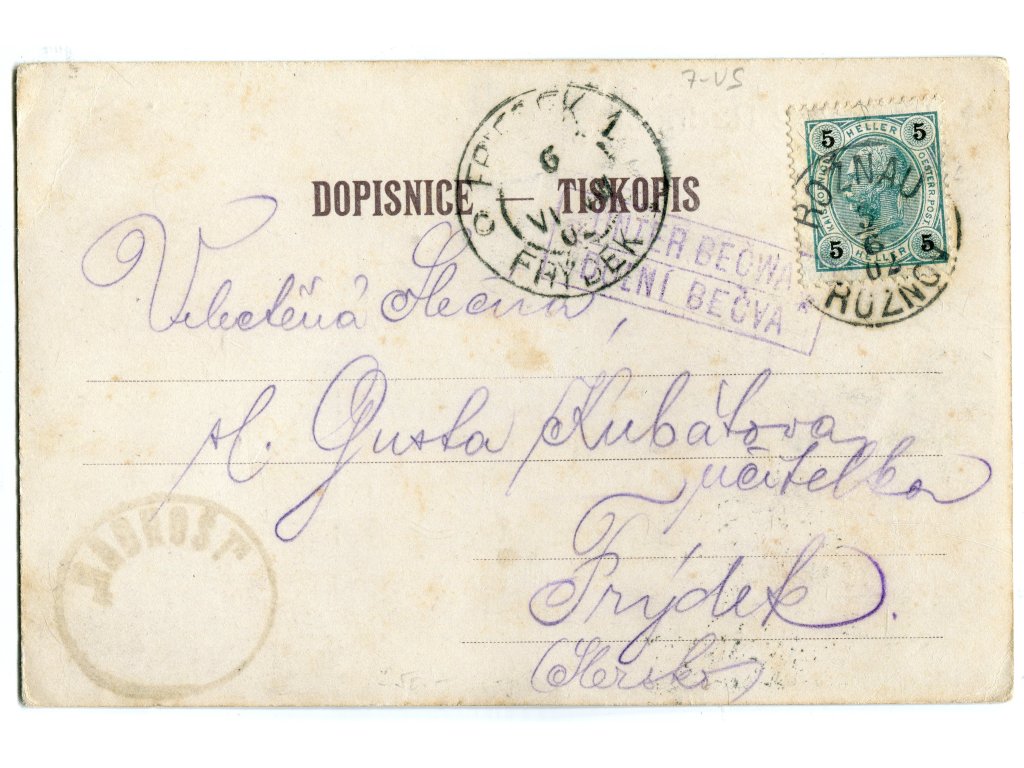 7-VS
5 HELLER 5
OESTERR. POST
5 HELLER 5
ROŽNAU
5
6
02
ROŽNOV
FRIEDEK 1
6
VI
02
FRÝDEK
DOPISNICE — TISKOPIS
UNTER BEČWA
DOLNÍ BEČVA
Velectěná slečna,
sl. Gusta Kubátova
učitelka
Frýdek.
(Slezsko)
"RADHOŠŤ"